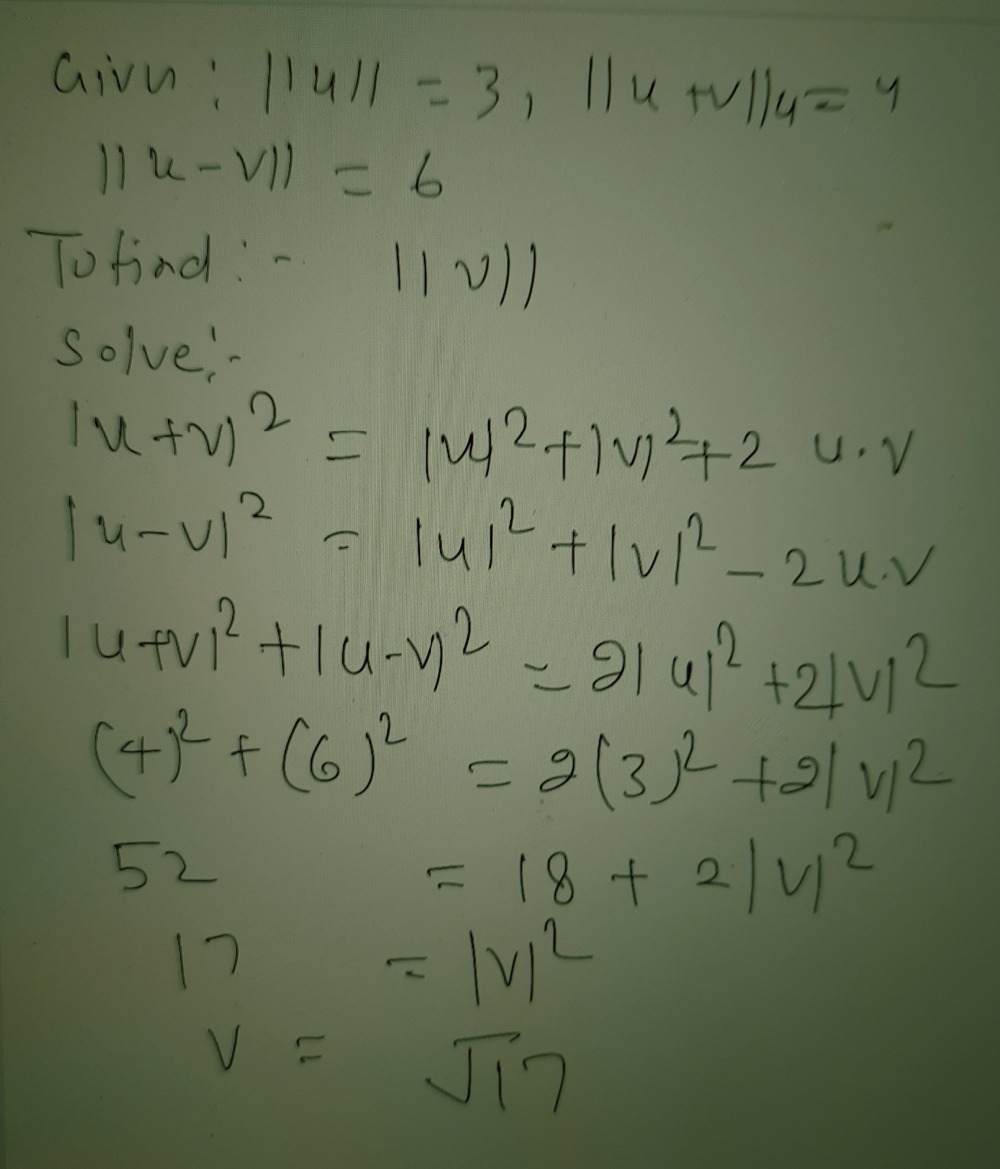 Givn : ||u|| = 3, ||u+v||4 = 4
||u-v|| = 6
To find :- ||v||
Solve :-
|u+v|² = |u|²+|v|²+2 u.v
|u-v|² = |u|²+|v|²-2u.v
|u+v|²+|u-v|² = 2|u|²+2|v|²
(4)²+(6)² = 2(3)²+2|v|²
52 = 18 + 2|v|²
17 = |v|²
v = √17